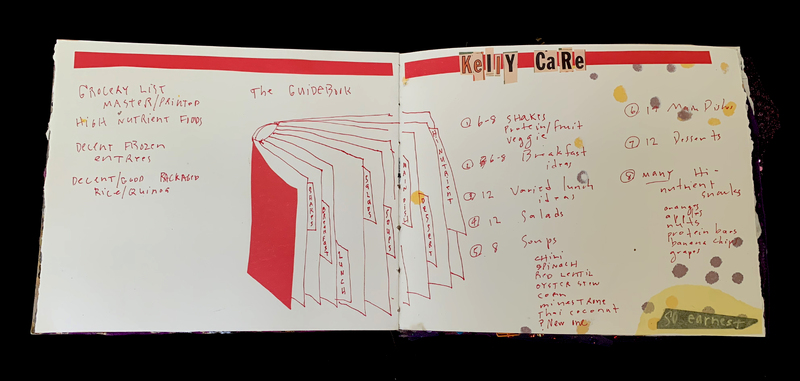 GROCERY LIST
MASTER/PRINTED
HIGH NUTRIENT FOODS
DECENT FROZEN
ENTREES
DECENT/GOOD PACKAGED
RICE/QUINOA
The GUIDEBOOK
SHAKES
BREAKFAST
LUNCH
SALADS
SOUPS
DESSERT
HI NUTRIENT
KellY CaRe
① 6-8 SHAKES
Protein/fruit
veggie
6-8 Breakfast
ideas
③ 12 Varied lunch
ideas
④ 12 Salads
⑤ 8 Soups
CHILI
SPINACH
RED LENTIL
OYSTER STEW
CORN
MINESTRONE
Thai coconut
? New one
⑥ Main Dishes
⑦ 12 Desserts
⑧ MANY Hi-
nutrient
snacks
oranges
apples
nuts
protein bars
banana chips
grapes
so earnest